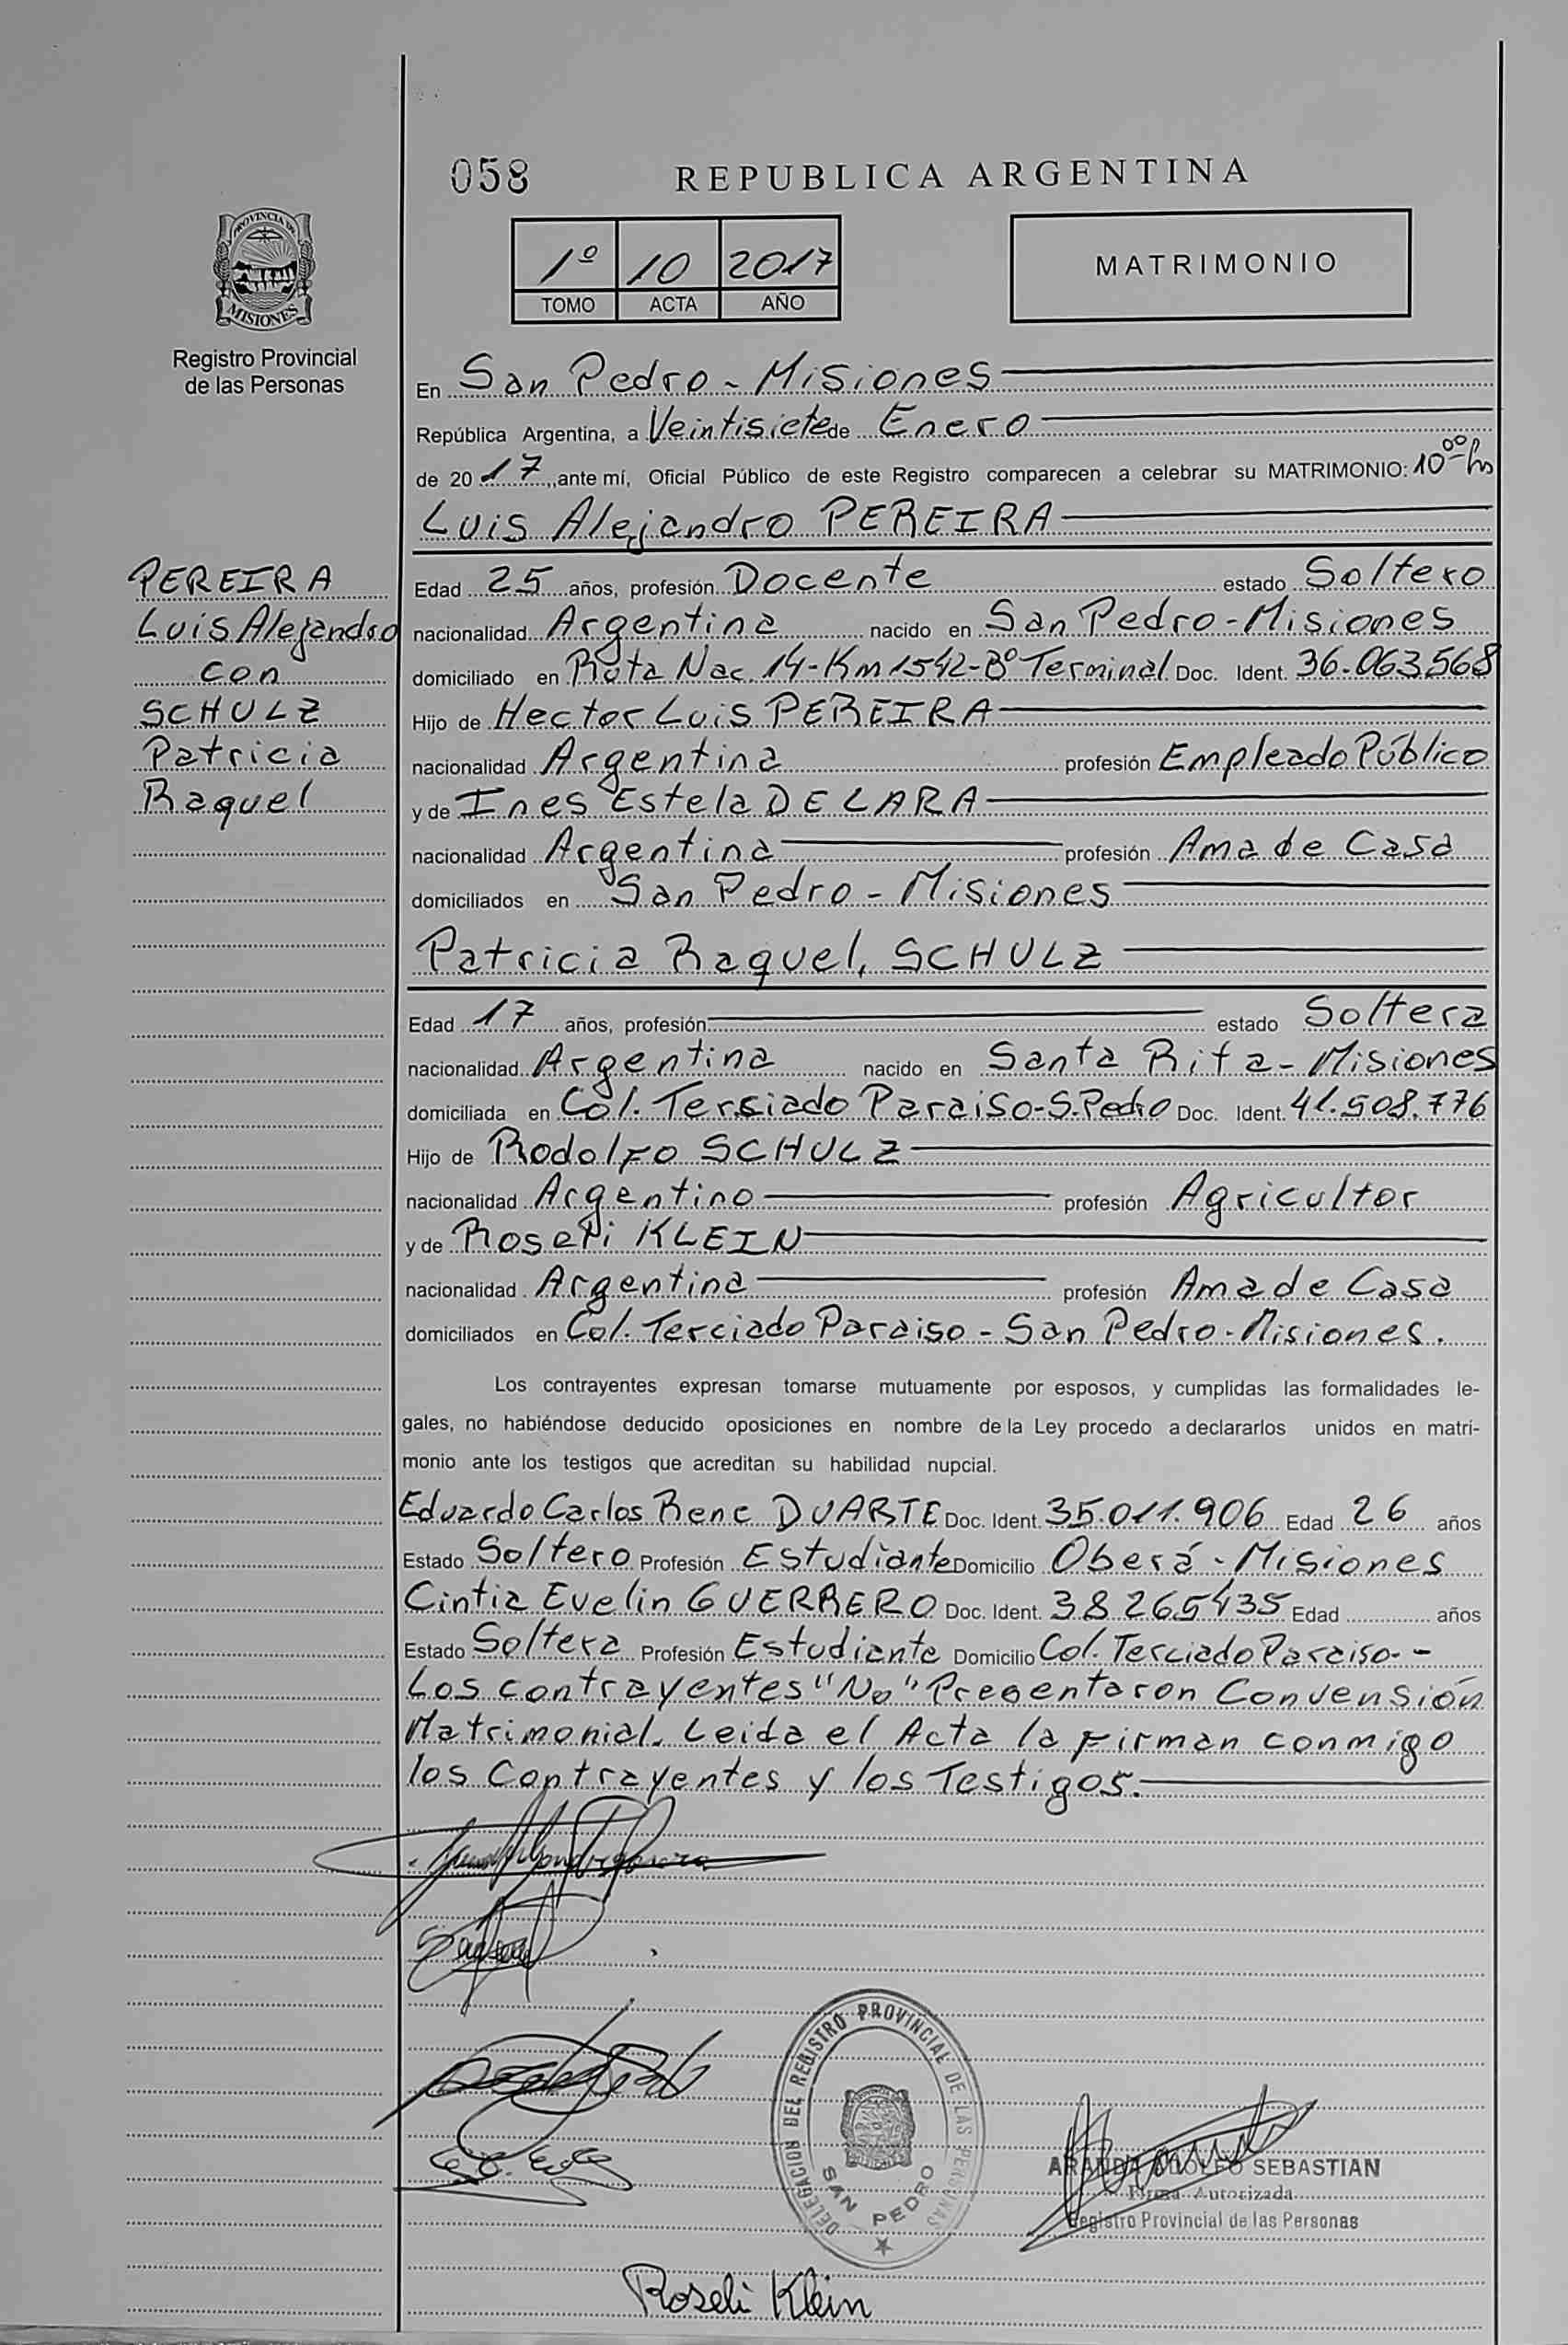 058
REPUBLICA ARGENTINA
PROVINCIA DE
MISIONES
Registro Provincial
de las Personas
1º 10 2017
TOMO ACTA AÑO
MATRIMONIO
En San Pedro - Misiones
República Argentina, a Veintisiete de Enero
de 2017, ante mí, Oficial Público de este Registro comparecen a celebrar su MATRIMONIO: 10⁰⁰ hs
Luis Alejandro PEREIRA
PEREIRA
Luis Alejandro
con
SCHULZ
Patricia
Raquel
Edad 25 años, profesión Docente estado Soltero
nacionalidad Argentina nacido en San Pedro - Misiones
domiciliado en Ruta Nac. 14 - Km 1542 - Bº Terminal Doc. Ident. 36.063.568
Hijo de Hector Luis PEREIRA
nacionalidad Argentina profesión Empleado Público
y de Ines Estela DE LARA
nacionalidad Argentina profesión Ama de Casa
domiciliados en San Pedro - Misiones
Patricia Raquel, SCHULZ
Edad 17 años, profesión estado Soltera
nacionalidad Argentina nacido en Santa Rita - Misiones
domiciliada en Col. Tersiado Paraiso - S. Pedro Doc. Ident. 41.508.776
Hijo de Rodolfo SCHULZ
nacionalidad Argentino profesión Agricultor
y de Roseli KLEIN
nacionalidad Argentina profesión Ama de Casa
domiciliados en Col. Terciado Paraiso - San Pedro - Misiones.
Los contrayentes expresan tomarse mutuamente por esposos, y cumplidas las formalidades le-
gales, no habiéndose deducido oposiciones en nombre de la Ley procedo a declararlos unidos en matri-
monio ante los testigos que acreditan su habilidad nupcial.
Eduardo Carlos Rene DUARTE Doc. Ident. 35.011.906 Edad 26 años
Estado Soltero Profesión Estudiante Domicilio Oberá - Misiones
Cintia Evelin GUERRERO Doc. Ident. 38.265435 Edad años
Estado Soltera Profesión Estudiante Domicilio Col. Terciado Paraiso. -
Los contrayentes "No" Presentaron Convensión
Matrimonial. Leida el Acta la Firman conmigo
los Contrayentes y los Testigos.
DELEGACION DEL REGISTRO PROVINCIAL DE LAS PERSONAS
SAN PEDRO
ARANDA ADOLFO SEBASTIAN
Firma Autorizada
Registro Provincial de las Personas
Roseli Klein